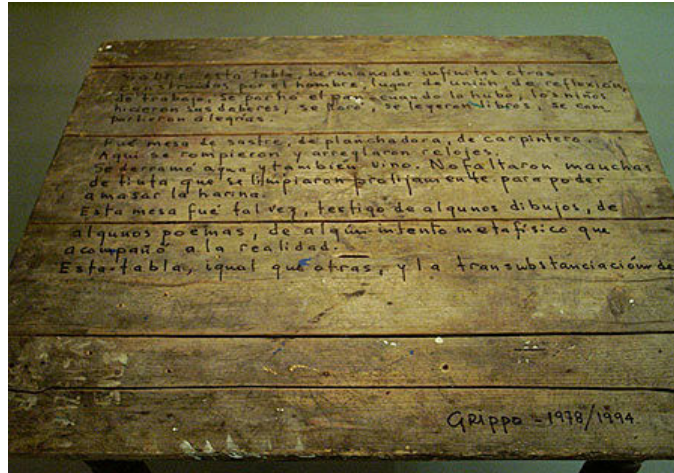 Sobre esta tabla, hermana de infinitas otras
construidas por el hombre, lugar de unión, de reflexión,
de trabajo, se partió el pan cuando lo hubo, los niños
hicieron sus deberes, se lloró, se leyeron libros, se com_
partieron alegrías.
Fué mesa de sastre, de planchadora, de carpintero.
Aquí se rompieron y arreglaron relojes.
Se derramó agua y también vino. No faltaron manchas
de tinta que se limpiaron prolijamente para poder
amasar la harina.
Esta mesa fué tal vez, testigo de algunos dibujos, de
algunos poemas, de algún intento metafísico que
acompañó a la realidad.
Esta tabla, igual que otras, y la transubstanciación de
GRIPPO - 1978/1994